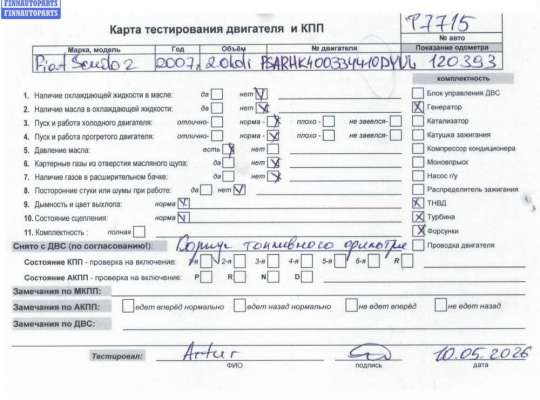 FINNAUTOPARTS
FINNAUTOPARTS
Карта тестирования двигателя и КПП
P7715
№ авто
Марка, модель Год Объём № двигателя Показание одометра
Fiat Scudo 2 2007г. 2.0hdi 120393
комплектность
1. Наличие охлаждающей жидкости в масле: да нет Блок управления ДВС
2. Наличие масла в охлаждающей жидкости: да нет Генератор
3. Пуск и работа холодного двигателя: отлично- норма - плохо - не завелся- Катализатор
4. Пуск и работа прогретого двигателя: отлично- норма - плохо - не завелся- Катушка зажигания
5. Давление масла: есть нет Компрессор кондиционера
6. Картерные газы из отверстия масляного щупа: да нет Моновпрыск
7. Наличие газов в расширительном бачке: да нет Насос г/у
8. Посторонние стуки или шумы при работе: да нет Распределитель зажигания
9. Дымность и цвет выхлопа: норма ТНВД
10. Состояние сцепления: норма Турбина
11. Комплектность : полная Форсунки
Снято с ДВС (по согласованию!): Корпус топливного фильтра Проводка двигателя
Состояние КПП - проверка на включение: 1-я 2-я 3-я 4-я 5-я 6-я R
Состояние АКПП - проверка на включение: P R N D
Замечания по МКПП:
Замечания по АКПП: едет вперёд нормально едет назад нормально не едет вперёд не едет назад
Замечания по ДВС:
Тестировал: Artur 10.05.2026
ФИО подпись дата